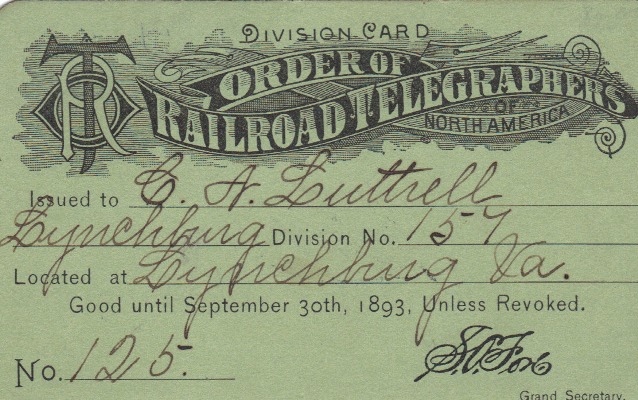 Division Card
Order of
Railroad Telegraphers
of
North America
Issued to C. N. Luttrell
Lynchburg Division No. 157
Located at Lynchburg Va.
Good until September 30th, 1893, Unless Revoked.
No. 125.
Grand Secretary.